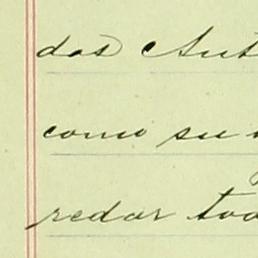 das Aut
como su
redor tod